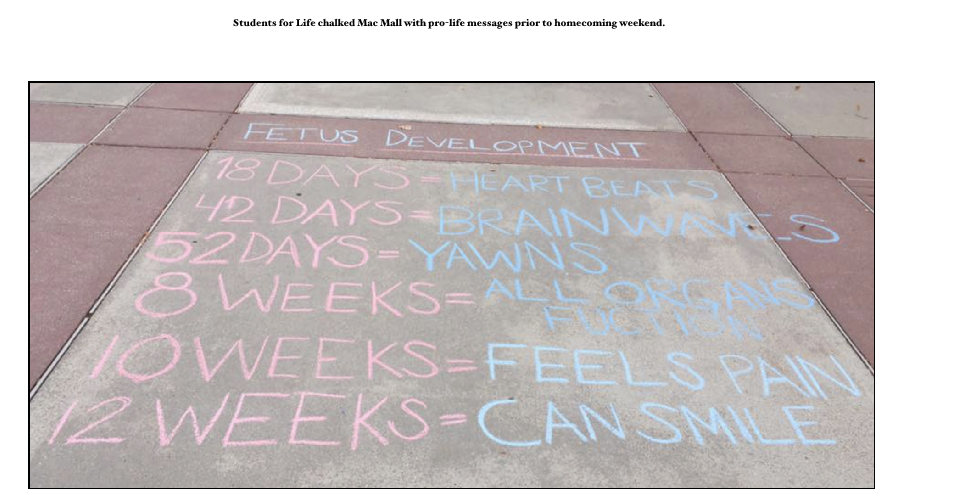 Students for Life chalked Mac Mall with pro-life messages prior to homecoming weekend.
FETUS DEVELOPMENT
18 DAYS = HEART BEATS
42 DAYS = BRAINWAVES
52 DAYS = YAWNS
8 WEEKS = ALL ORGANS
FUCTION
10 WEEKS = FEELS PAIN
12 WEEKS = CAN SMILE